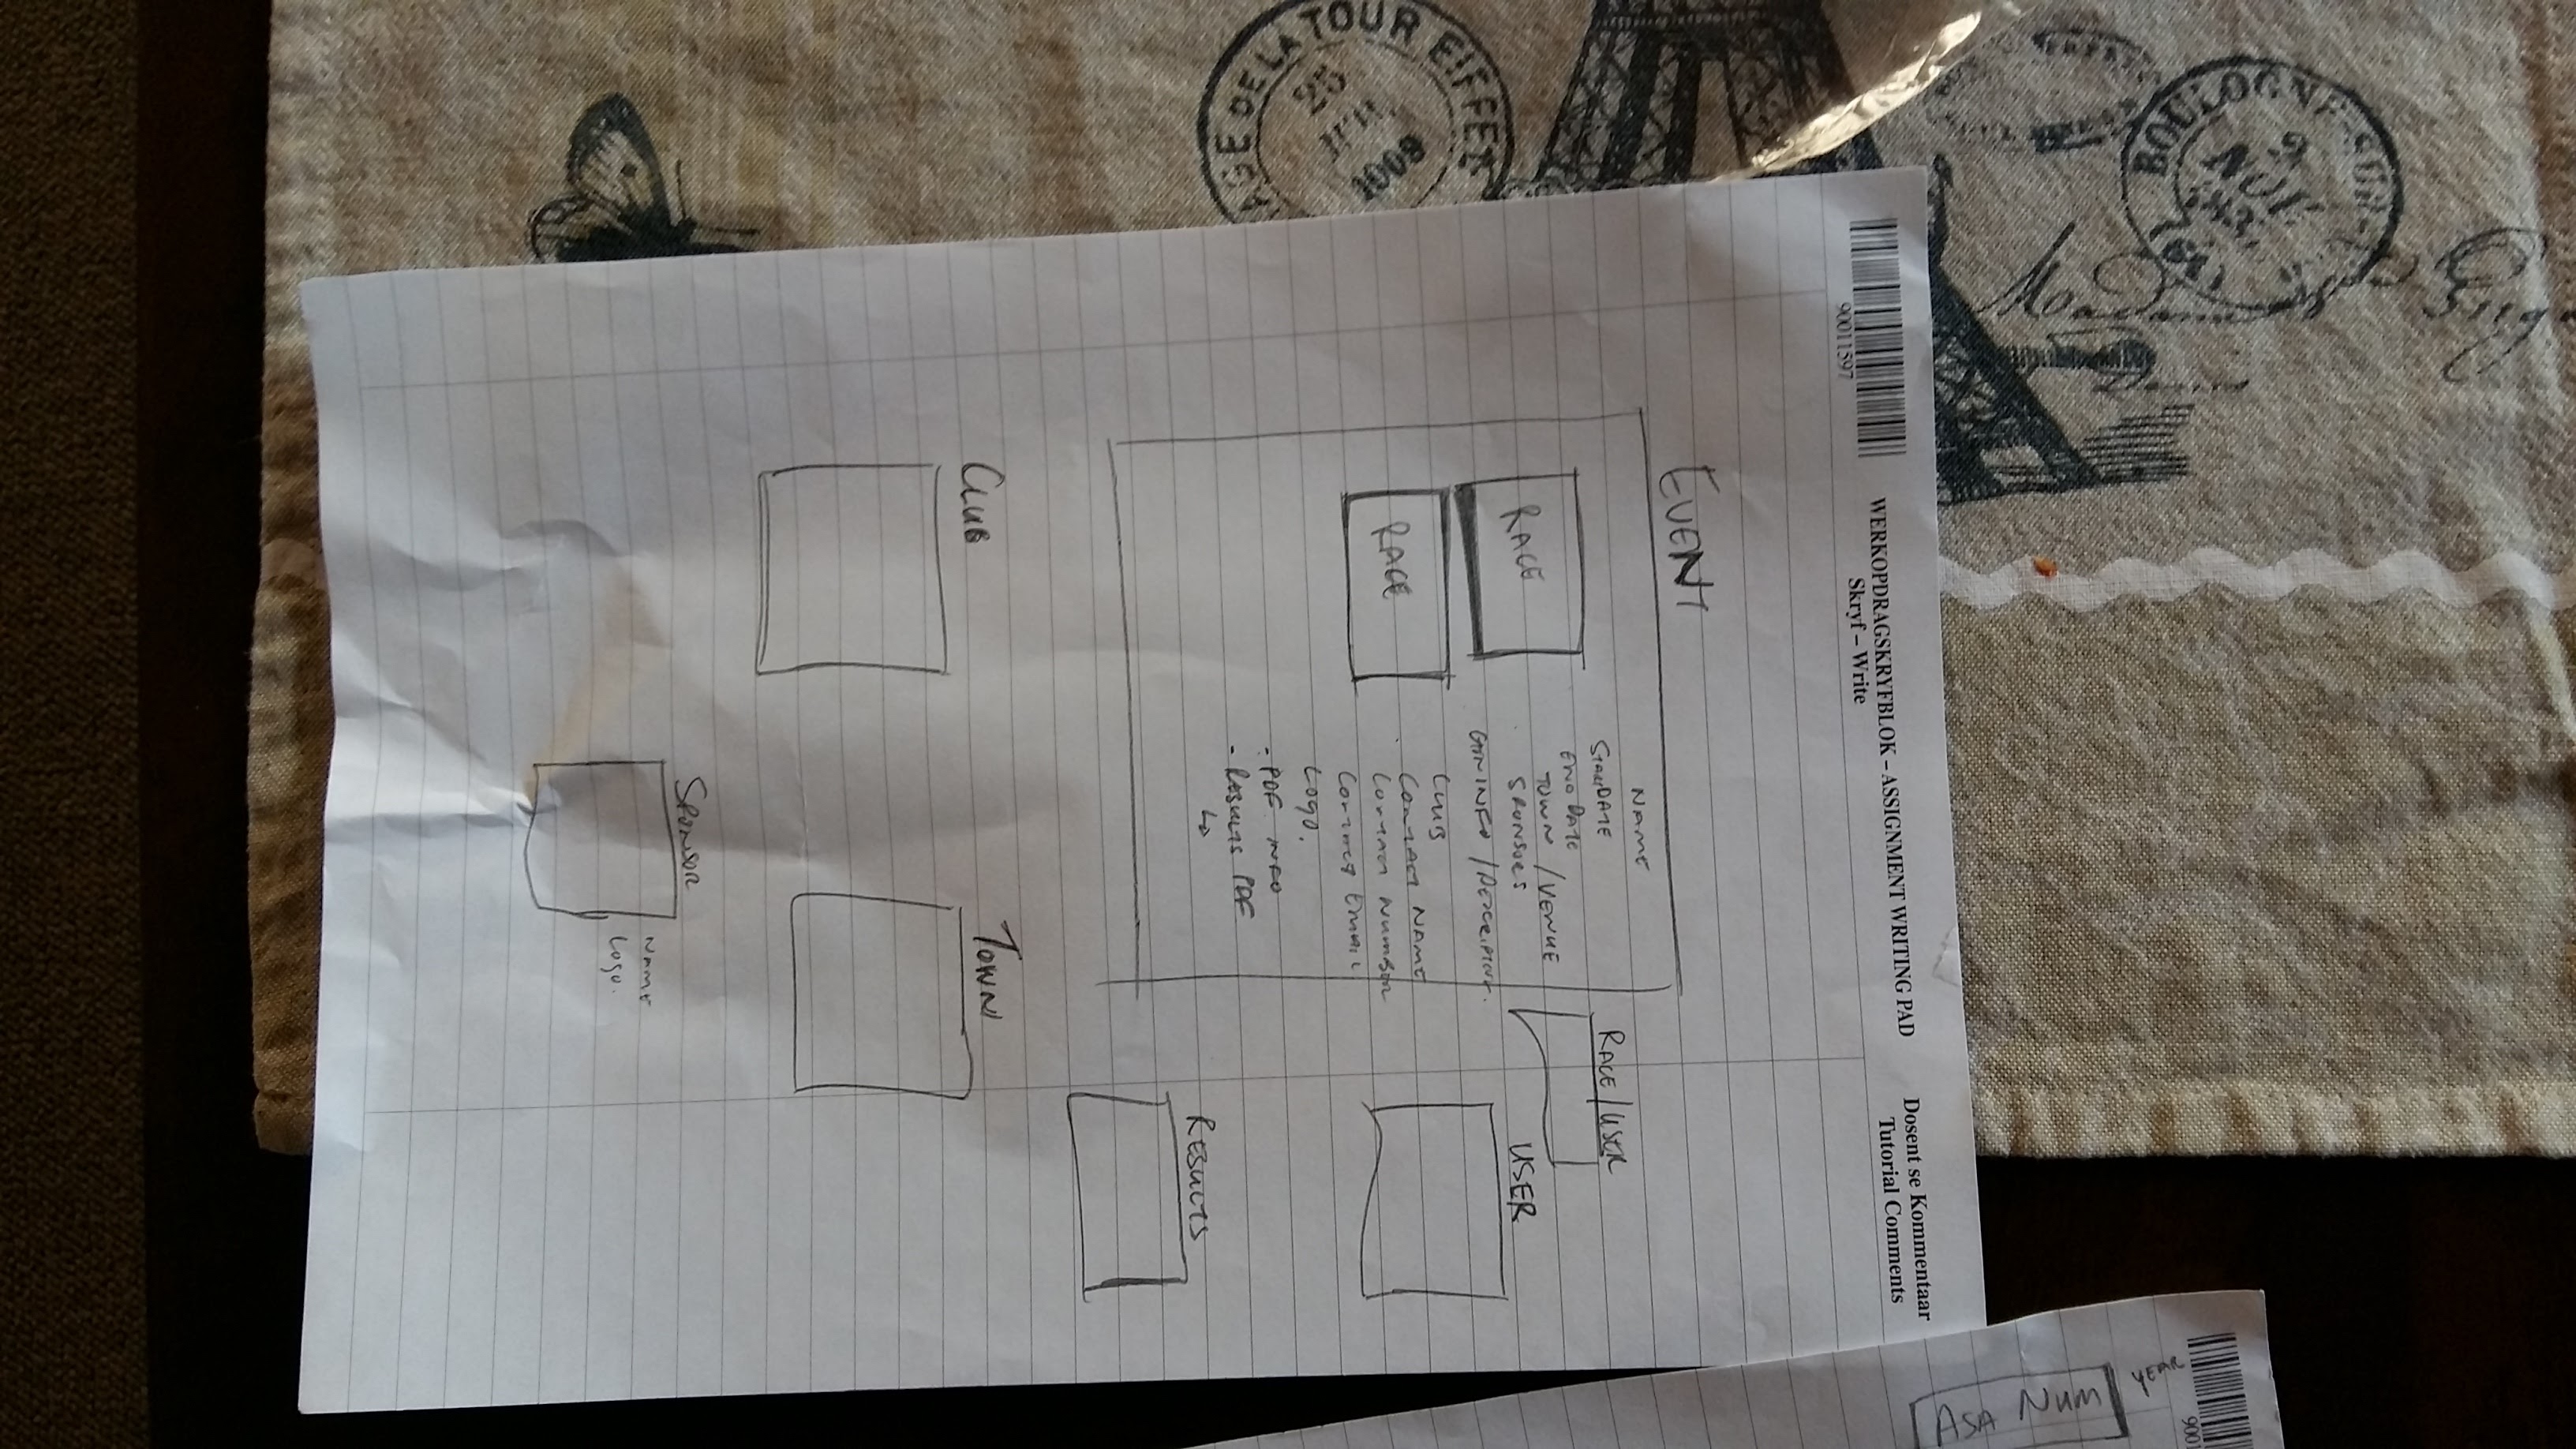 BOULOGNE-SUR-
9
NOV
1903
No.
TOUR EIFFEL
90011597
WERKOPDRAGSKRYFBLOK – ASSIGNMENT WRITING PAD
Skryf – Write
Dosent se Kommentaar
Tutorial Comments
9001
YEAR
ASA NUM
EVENT
NAME
START DATE
END DATE
TOWN / VENUE
SPONSORS
GEN INFO / DESCRIPTION.
CLUB
CONTACT NAME
CONTACT NUMBER
CONTACT EMAIL
LOGO.
- PDF INFO
- RESULTS PDF
↳
RACE
RACE
RACE / USER
USER
RESULTS
CLUB
TOWN
SPONSOR
NAME
LOGO.